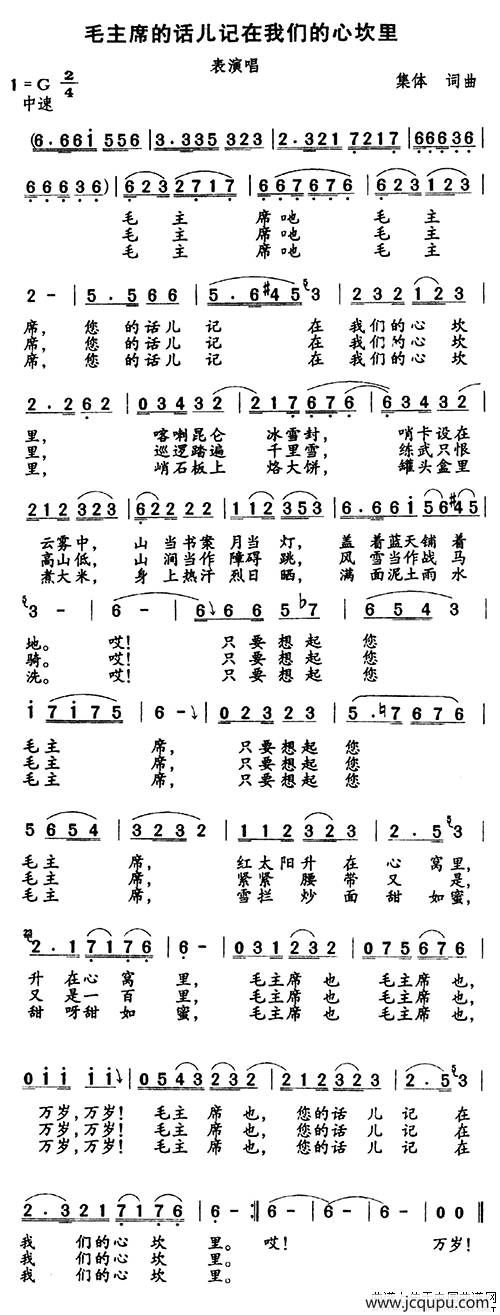 毛主席的话儿记在我们的心坎里
表演唱
1=G 2/4
中速
集体 词曲
(6.661̇ 556 | 3.335 323 | 2.321 7217 | 66636 |
66636) | 6232717 | 667676 | 623123 |
毛 主 席吔 毛 主
毛 主 席吔 毛 主
毛 主 席吔 毛 主
2 - | 5.566 | 5.6#45 3 | 232123 |
席，您 的话儿 记 在 我们的心 坎
席，您 的话儿 记 在 我们的心 坎
席，您 的话儿 记 在 我们的心 坎
2.262 | 03432 | 217676 | 63432 |
里， 喀喇昆仑 冰雪封， 哨卡设在
里， 巡逻踏遍 千里雪， 练武只恨
里， 峭石板上 烙大饼， 罐头盒里
212323 | 62222 | 112353 | 6.661̇56#45 |
云雾中， 山 当书案 月当 灯， 盖 着蓝天铺 着
高山低， 山 涧当作 障碍 跳， 风 雪当作战 马
煮大米， 身 上热汗 烈日 晒， 满 面泥土雨 水
3 - | 6 - | 6 66 5♭7 | 6543 |
地。 哎！ 只要想起 您
骑。 哎！ 只要想起 您
洗。 哎！ 只要想起 您
1̇71̇75 | 6 - | 02323 | 5.♮7676 |
毛主 席， 只要想起 您
毛主 席， 只要想起 您
毛主 席， 只要想起 您
5654 | 3232 | 112323 | 2.53 |
毛主 席， 红太阳升 在 心 窝里，
毛主 席， 紧紧 腰 带 又 是，
毛主 席， 雪拦 炒 面 甜 如蜜，
2.17176 | 6 - | 031232 | 075676 |
升 在心 窝 里， 毛主席 也 毛主席 也，
又 是一 百 里， 毛主席 也 毛主席 也，
甜 呀甜 如 蜜， 毛主席 也 毛主席 也，
01̇1̇ 1̇1̇ | 0543232 | 212323 | 2.53 |
万岁，万岁！ 毛主 席 也， 您的话 儿 记 在
万岁，万岁！ 毛主 席 也， 您的话 儿 记 在
万岁，万岁！ 毛主 席 也， 您的话 儿 记 在
2.3217176 | 6 - :‖ 6 - | 6 - | 00 ‖
我 们的心 坎 里。 哎！ 万岁！
我 们的心 坎 里。
我 们的心 坎 里。
www.jcqupu.com